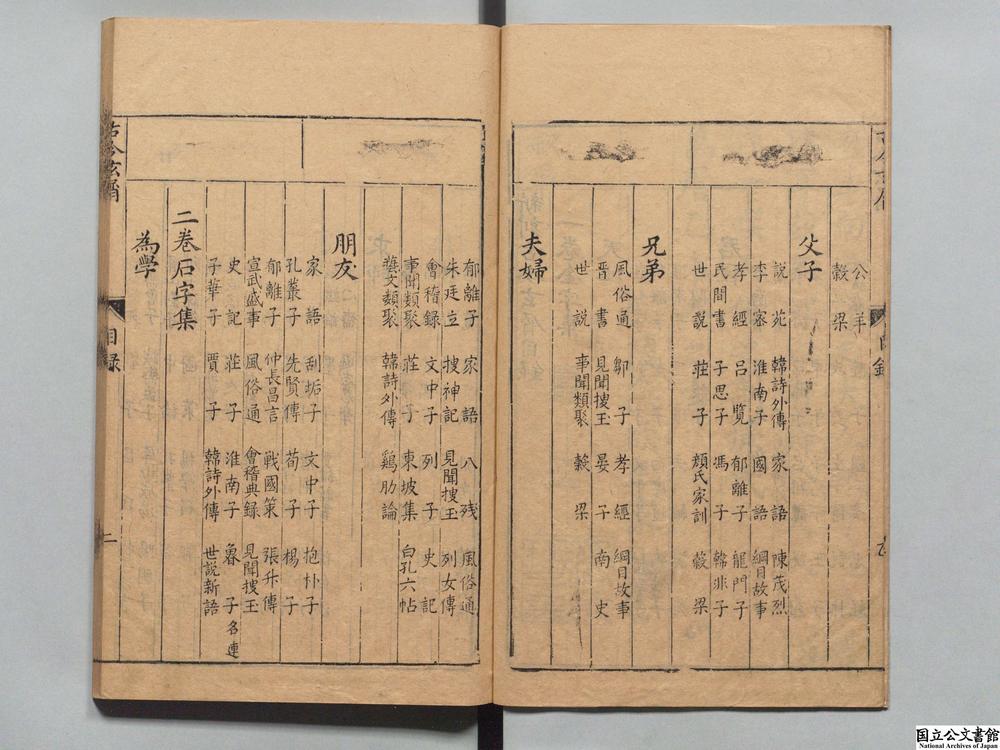 公羊
穀梁
父子
說苑 韓詩外傳 家語 陳茂烈
李密 淮南子 國語 綱目故事
孝經 呂覽 郁離子 龍門子
民間書 子思子 馮子 韓非子
世說 莊子 顏氏家訓 穀梁
兄弟
風俗通 鄒子 孝經 綱目故事
晋書 見聞搜玉 晏子 南史
世說 事聞類聚 穀梁
夫婦
郁離子 家語 八殘 風俗通
朱廷立 搜神記 見聞搜玉 列女傳
會稽錄 文中子 列子 史記
事聞類聚 莊子 東坡集 白孔六帖
藝文類聚 韓詩外傳 鷄肋論
朋友
家語 刮垢子 文中子 抱朴子
孔叢子 先賢傳 荀子 楊子
郁離子 仲長昌言 戰國策 張升傳
宣武盛事 風俗通 會稽典錄 見聞搜玉
史記 莊子 淮南子 魯連子
子華子 賈子 韓詩外傳 世說新語
二卷石字集
為學
古今玄屑
目録
二
国立公文書館
National Archives of Japan